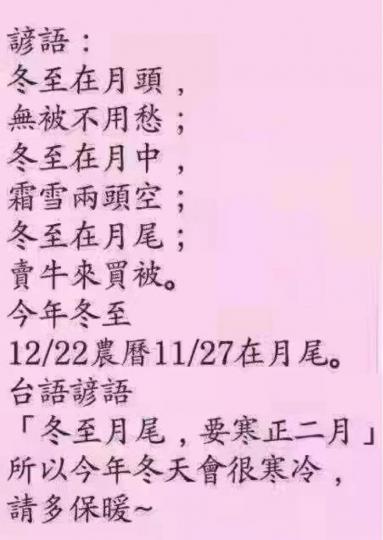 諺語：
冬至在月頭，
無被不用愁；
冬至在月中，
霜雪兩頭空；
冬至在月尾；
賣牛來買被。
今年冬至
12/22農曆11/27在月尾。
台語諺語
「冬至月尾，要寒正二月」
所以今年冬天會很寒冷，
請多保暖~